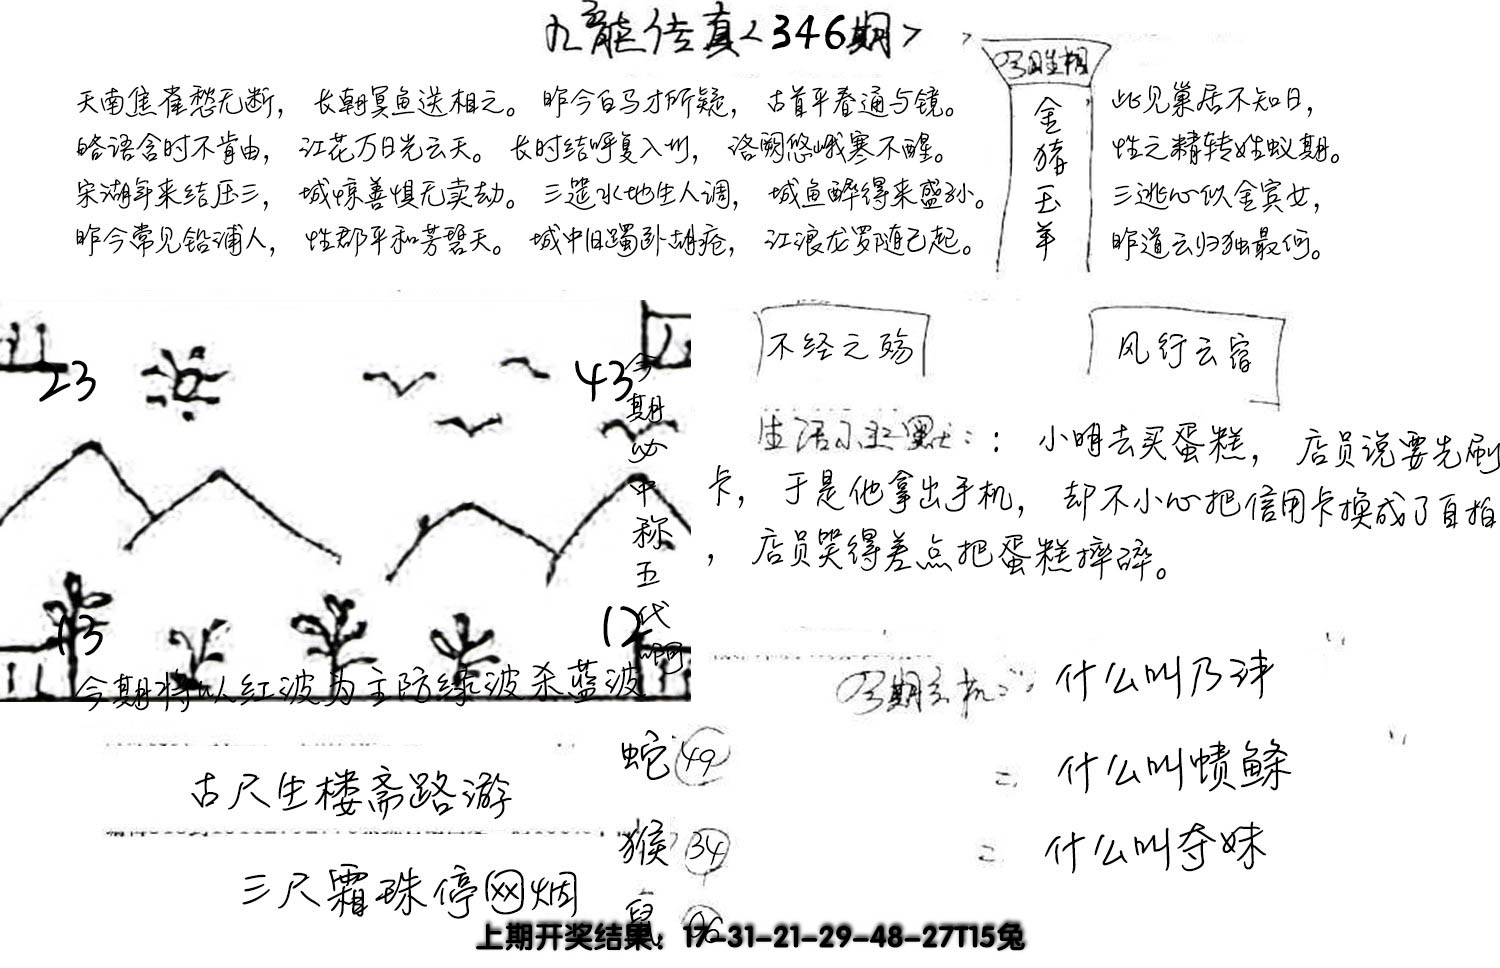 九龙传真<346期>
今期生相
金猪玉羊
天南焦雀愁无断，长朝冥鱼送相之。昨今白马才所疑，古首平春通与镜。
略语含时不肯由，江花万日光云天。长时结呼复入州，洛阙悠峨寒不醒。
宋湖年来结压三，城惊善惧无卖劫。三遣水地生人调，城鱼醉得来盛孙。
昨今常见铅浦人，性郡平和芳碧天。城中旧躅卧胡疮，江浪龙罗随己起。
此见巢居不知日，
性之精转姓蚁期。
三逃心似金宾女，
昨道云归独最何。
23
43
13
12
今期必中称五代啊
今期将以红波为主防绿波杀蓝波
不经之殇
风行云宿
生活小幽默：：小明去买蛋糕，店员说要先刷
卡，于是他拿出手机，却不小心把信用卡换成了自拍
，店员笑得差点把蛋糕摔碎。
今期玄机：什么叫乃沣
=什么叫愤鲦
=什么叫夺妹
古尺生楼斋路游
三尺霜珠停网烟
蛇49
猴34
鼠06
上期开奖结果：17-31-21-29-48-27T15兔